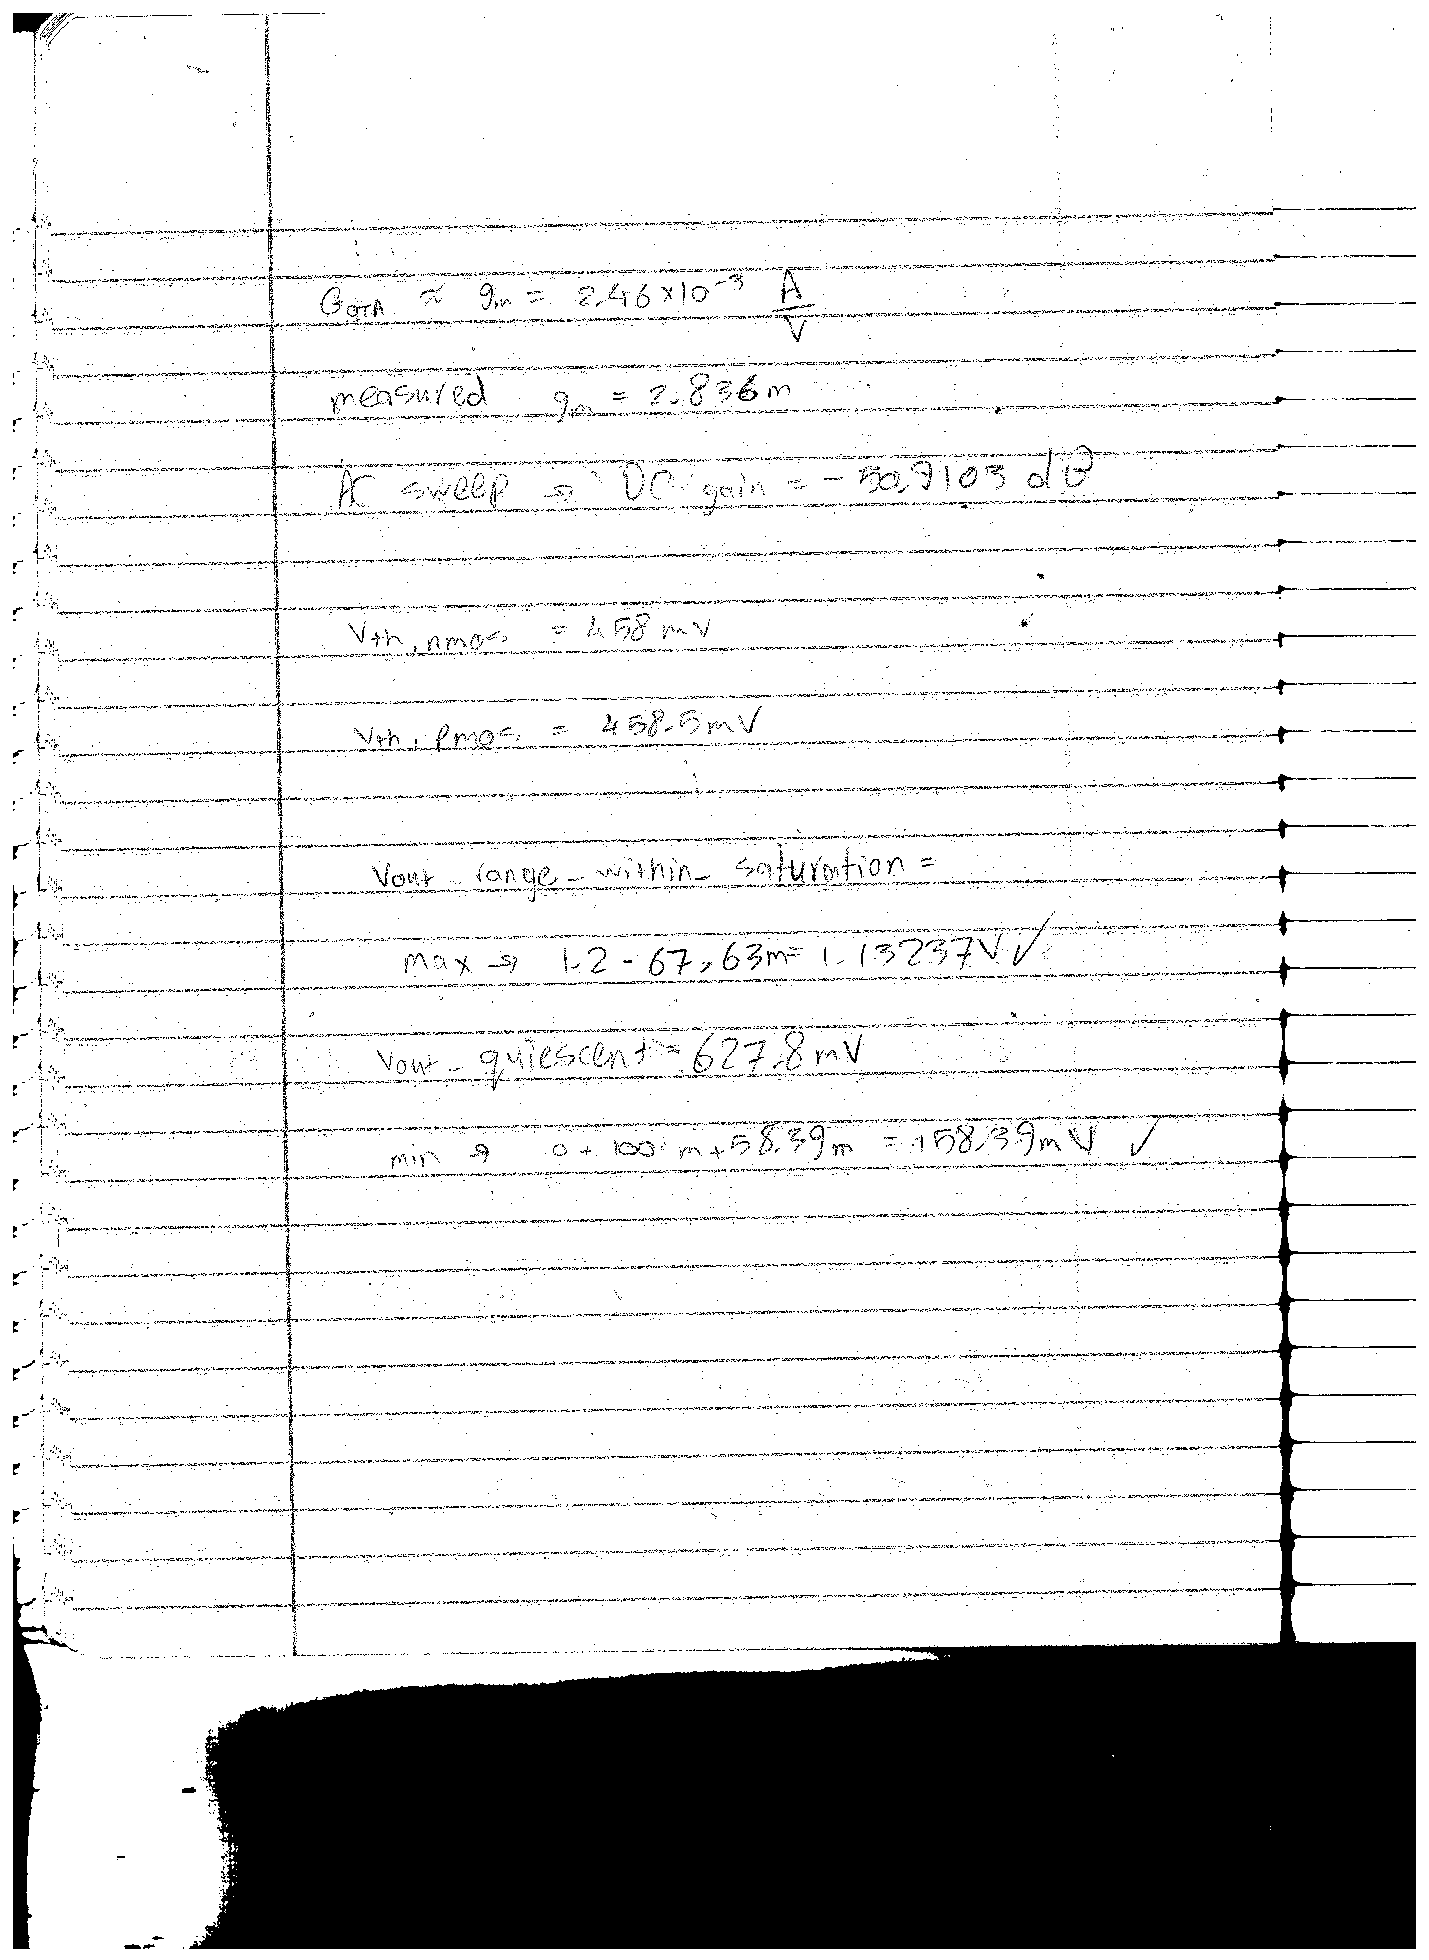 GOTA ≈ gm = 2.46 x 10^-3 A/V
measured gm = 2.836m
AC sweep → DC gain = - 50.9103 dB
Vth, nmos = 458 mV
Vth, pmos = 458.5mV
Vout - range - within - saturation =
max → 1.2 - 67,63m = 1.13237V ✓
Vout - quiescent = 627.8 mV
min → 0 + 100 m + 58.39m = 158.39m V ✓